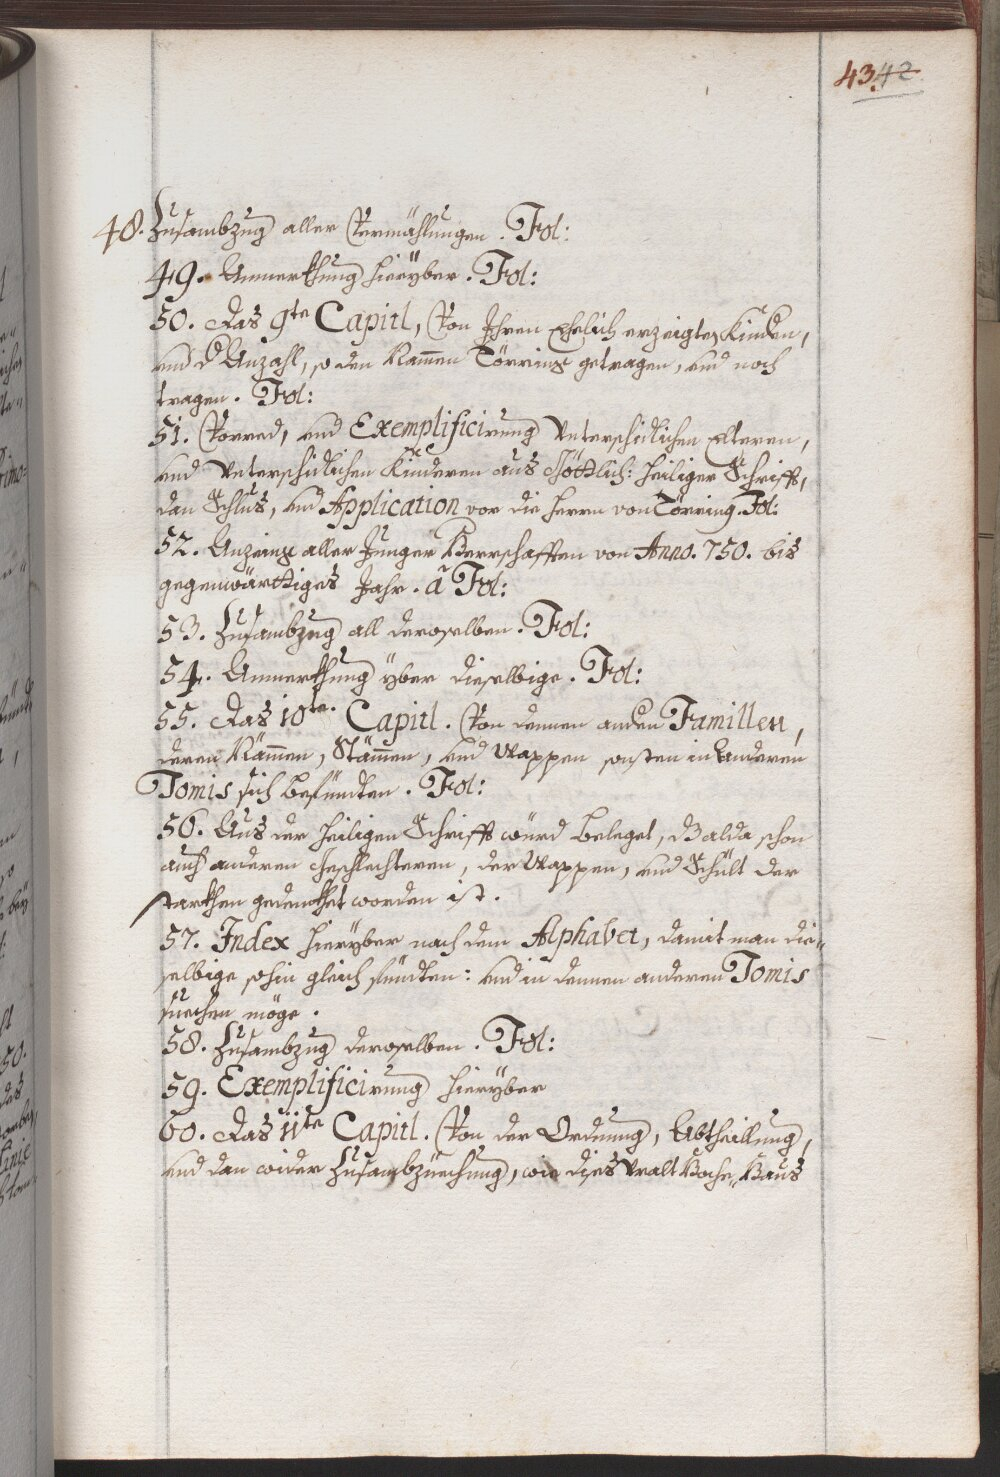 43. 42
48. Zusambzug aller Vermählungen. Fol:
49. Anmerkhung hierÿber. Fol:
50. Das 9te Capitl, Von Ihren Ehelich erzeigten Kindern,
und d Anzahl, so den Namen Törring getragen, und noch
tragen. Fol:
51. Vorred, und Exemplificirung Unterschidlichen Elteren,
und Unterschidlichen Kinderen aus Göttlich: heiliger Schrifft,
dan Schlus, und Application vor die Herrn von Törring. Fol:
52. Anzeing aller Junger Herrschafften von Anno. 750. bis
gegenwärttiges Jahr. à Fol:
53. Zusambzug all deroselben. Fol:
54. Anmerkhung ÿber dieselbige. Fol:
55. Das 10te. Capitl. Von dennen anderen Famillen,
deren Nammen, Stämmen, und Wappen sonsten in anderen
Tomis sich befündten. Fol:
56. Aus der heiligen Schrifft würd beleget, dz alda schon
auch anderen Geschlechteren, der Wappen, und Schült der
starkhen gedenkhet worden ist.
57. Index hierÿber nach dem Alphabet, damit man die-
selbige sohin gleich fündten: und in dennen anderen Tomis
suechen möge.
58. Zusambzug deroselben. Fol:
59. Exemplificirung hierÿber
60. Das 11te Capitl. Von der Ordnung, Abtheillung,
und dan wider Zusambzüechung, wie dises Uralt Hoche Haus